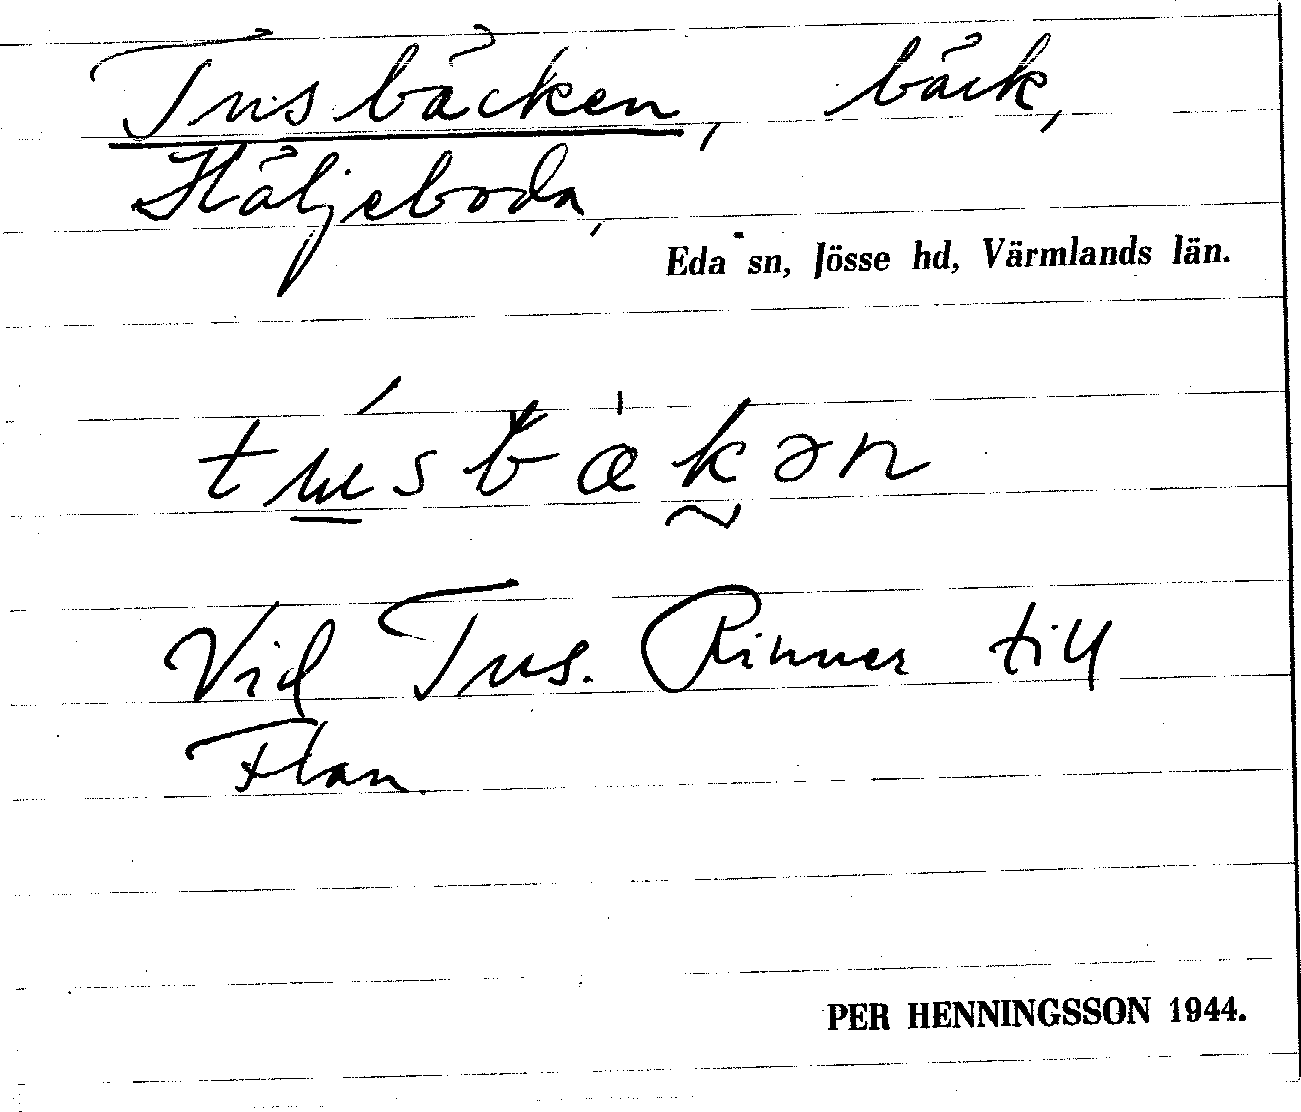 Tusbäcken, bäck,
Häljeboda,
Eda sn, Jösse hd, Värmlands län.
Vid Tus. Rinner till
Flan.
PER HENNINGSSON 1944.